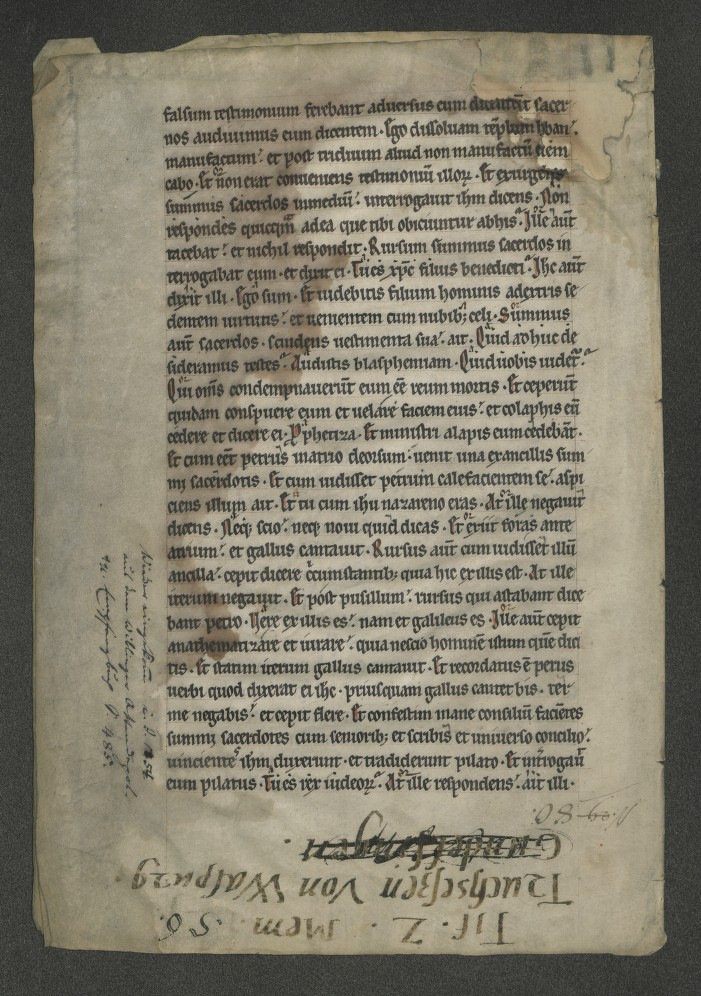 falsum testimonium ferebant adversus eum dicentes̄ sacer
nos audiuimus eum dicentem · Ego dissoluam tēplum h
manufactum · et post triduum aliud non manufactū
cabo · Et ñon erat conueniens testimoniū illoꝝ · Et exurgens
summus sacerdos inmediū · interrogauit ihm dicens · Non
respondes quicqm̄ adea que tibi obiciuntur abhis · Ille aūt
tacebat · et nichil respondit · Rursum summus sacerdos in
terrogabat eum · et dixit ei · Tu es xp̄c filius benedicti · Ihc aūt
dixit illi · Ego sum · Et uidebitis filium hominis adextris se
dentem uirtutis · et uenientem cum nubibꝫ celi · Summus
aūt sacerdos · scindens uestimenta sua · ait · Quid adhuc de
sideramus testes · Audistis blasphemiam · Quid uobis uidet̄ ·
Qui om̄s condempnauerūt eum eē reum mortis · Et ceperūt
quidam conspuere eum et uelare faciem eius · et colaphis eū
cedere et dicere ei · Pphetiza · Et ministri alapis eum cedebāt ·
Et cum eēt petrus inatrio deorsum · uenit una exancillis sum
mi sacerdotis · Et cum uidisset petrum calefacientem se · aspi
ciens illum ait · Et tu cum ihu nazareno eras · At ille negauit
dicens · Neqꝫ scio · neqꝫ noui quid dicas · Et exiit foras ante
atrium · et gallus cantauit · Rursus aūt cum uidisset illū
ancilla · cepit dicere c̄cumstantibꝫ quia hic exillis est · At ille
iterum negauit · Et post pusillum · rursus qui astabant dice
bant petro · Uere ex illis es · nam et galileus es · Ille aūt cepit
anathematizare et iurare · quia nescio hominē istum quē dici
tis · Et statim iterum gallus cantauit · Et recordatus ē petrus
uerbi quod dixerat ei ihc · priusquam gallus cantet bis · ter
me negabis · et cepit flere · Et confestim mane consiliū faciētes
summi sacerdotes cum senioribꝫ et scribis et uniuerso concilio ·
uincientes ihm duxerunt · et tradiderunt pilato · Et int̄rogauit
eum pilatus · Tu es rex iudeoꝝ · At ille respondens · ait illi ·
No. 80.
Truchseßen Von Walpurg.
Tif. Z. Mem. 56.